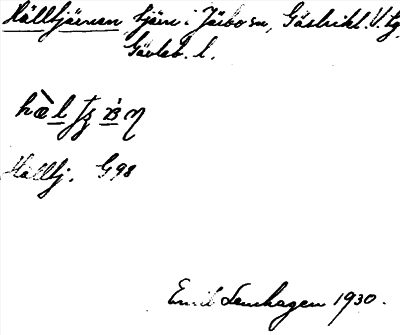 Källtjärnen tjärn i Järbo sn, Gästrikl. V. tg,
Gävleb. l.
Källtj. G 98
Emil Lenhagen 1930.